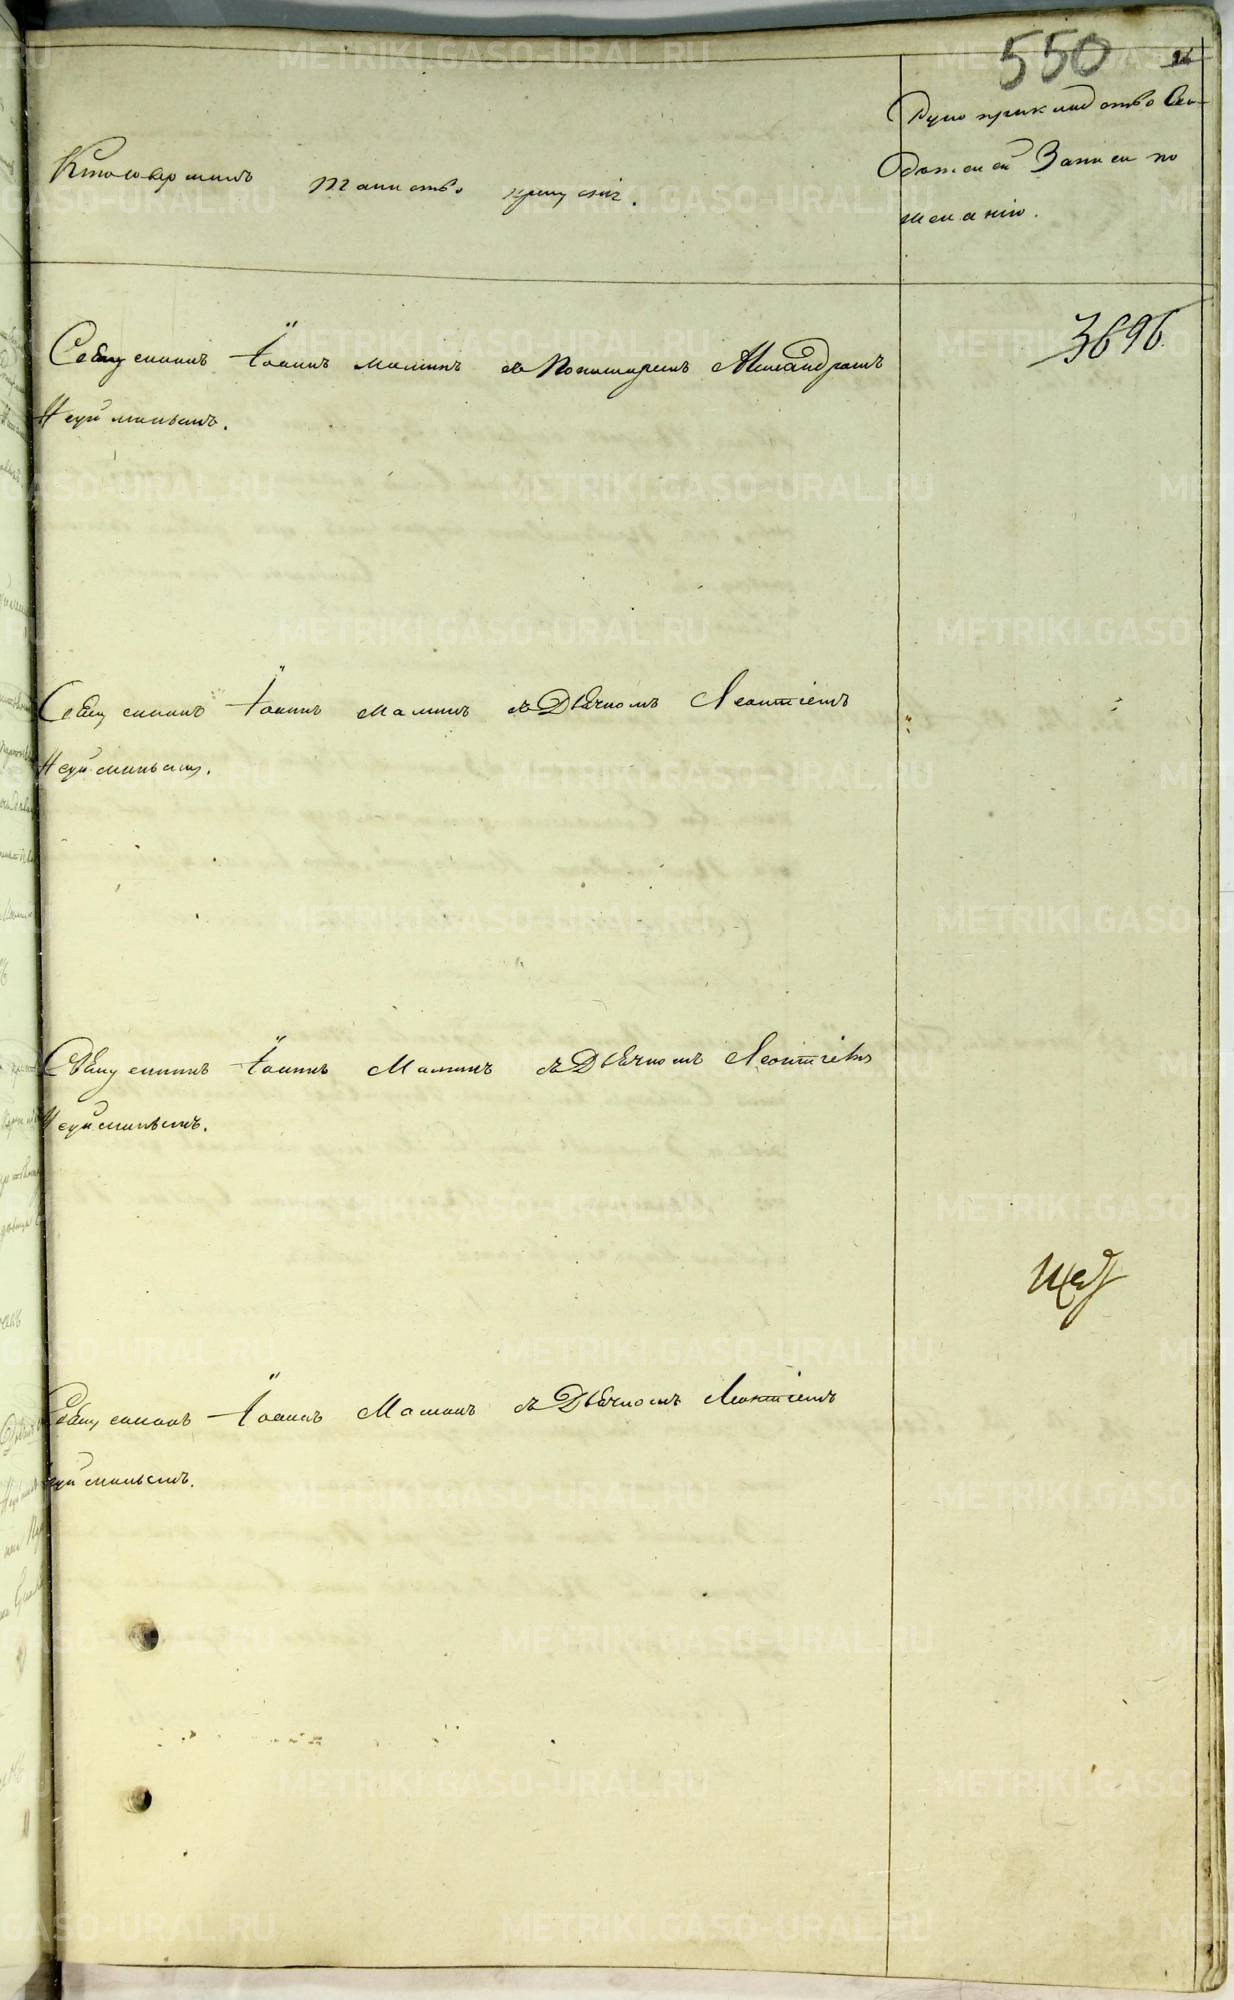 550
Кто совершилъ таинство крещенія.
Рукоприкладство Сви-
дѣтелей Записи по
желанію.
Священникъ Іоаннъ маминъ съ Пономаремъ Александромъ
Неуйминымъ.
3696
Священникъ Іоаннъ маминъ съ Дьячкомъ Леонтіемъ
Неуйминымъ.
Священникъ Іоаннъ Маминъ съ Дьячкомъ Леонтіемъ
Неуйминымъ.
Священникъ Іоаннъ Маминъ съ Дьячкомъ Леонтіемъ
Неуйминымъ.
METRIKI.GASO-URAL.RU